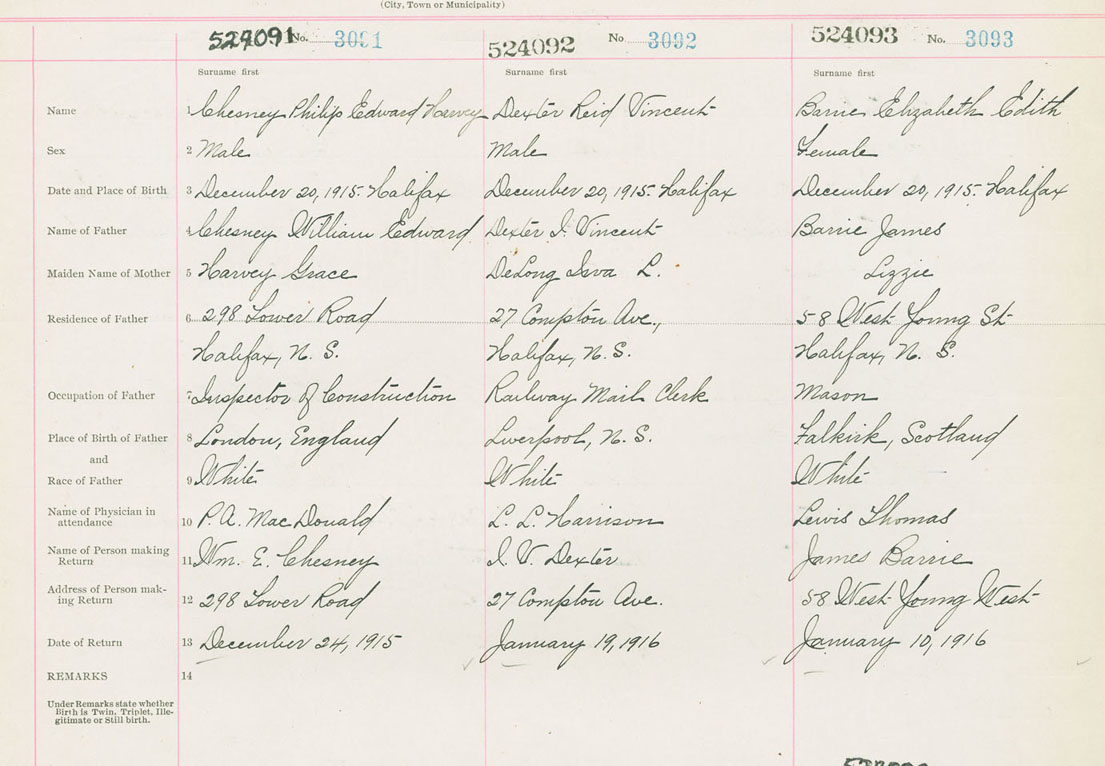 (City, Town or Municipality)
524091 No. 3091 524092 No. 3092 524093 No. 3093
Surname first Surname first Surname first
Name 1 Chesney Philip Edward Harvey Dexter Reid Vincent Barrie Elizabeth Edith
Sex 2 Male Male Female
Date and Place of Birth 3 December 20, 1915. Halifax December 20, 1915. Halifax December 20, 1915. Halifax
Name of Father 4 Chesney William Edward Dexter I. Vincent Barrie James
Maiden Name of Mother 5 Harvey Grace DeLong Iva L. Lizzie
Residence of Father 6 298 Lower Road 27 Compton Ave., 58 West Young St
Halifax, N. S. Halifax, N. S. Halifax, N. S.
Occupation of Father 7 Inspector of Construction Railway Mail Clerk Mason
Place of Birth of Father 8 London, England Liverpool, N. S. Falkirk, Scotland
and
Race of Father 9 White White White
Name of Physician in
attendance 10 P. A. MacDonald L. L. Harrison Lewis Thomas
Name of Person making
Return 11 Wm. E. Chesney I. V. Dexter James Barrie
Address of Person mak-
ing Return 12 298 Lower Road 27 Compton Ave. 58 West Young West
Date of Return 13 December 24, 1915 January 19, 1916 January 10, 1916
REMARKS 14
Under Remarks state whether
Birth is Twin, Triplet, Ille-
gitimate or Still birth.